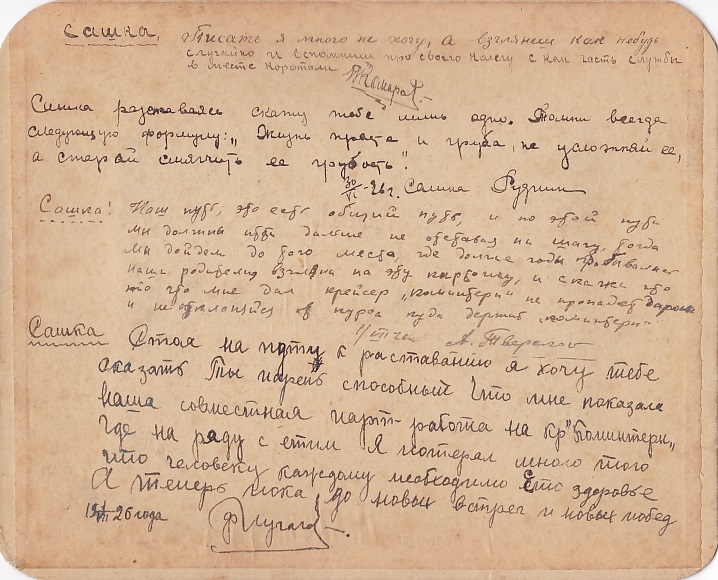 Сашка, Писать я много не хочу, а взглянеш как небудь
случайно и вспомниш про своего колегу с кем часть службы
вместе коротали
Сашка разставаясь скажу тебе лишь одно. Помни всегда
следующую формулу: „Жизнь проста и груба, не усложняй ее,
а старай смягчить ее грубость".
30/VI-26 г. Сашка
Сашка! Наш путь, это есть общий путь, и по этой пути
мы должны итти дальше не отставая на шагу, когда
мы дойдем до того места, где долгие годы
наши родители взгляни на эту карточку, и скажи что
то что мне дал крейсер „коминтерн" не пропадет даром
и не отклоняйся от курса куда держит „коминтерн"
А.
Сашка Стоя на пути к раставанию я хочу тебе
сказать Ты парень способный Что мне показала
наша совместная парт-работа на кр „Коминтерн„
Где на ряду с етим Я потерал много того
что человеку каждому необходимо Ето здоровье
А теперь пока до новых встреч и новых побед
26 года